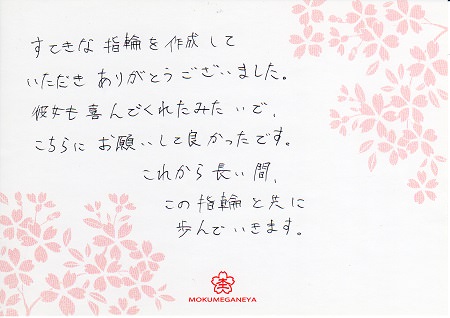 すてきな指輪を作成して
いただきありがとうございました。
彼女も喜んでくれたみたいで、
こちらにお願いして良かったです。
これから長い間、
この指輪と共に
歩んでいきます。
MOKUMEGANEYA